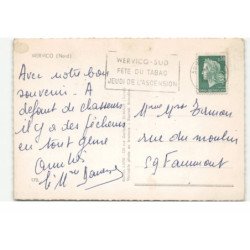 WERVICQ (Nord)
WERVICQ-SUD
FÊTE DU TABAC
JEUDI DE L'ASCENSION
Avec notre bon
souvenir. A
défaut de chasseurs
il y a des pêcheurs
en tout genre
Amitiés
Mme
rue du moulin
59 Faumont